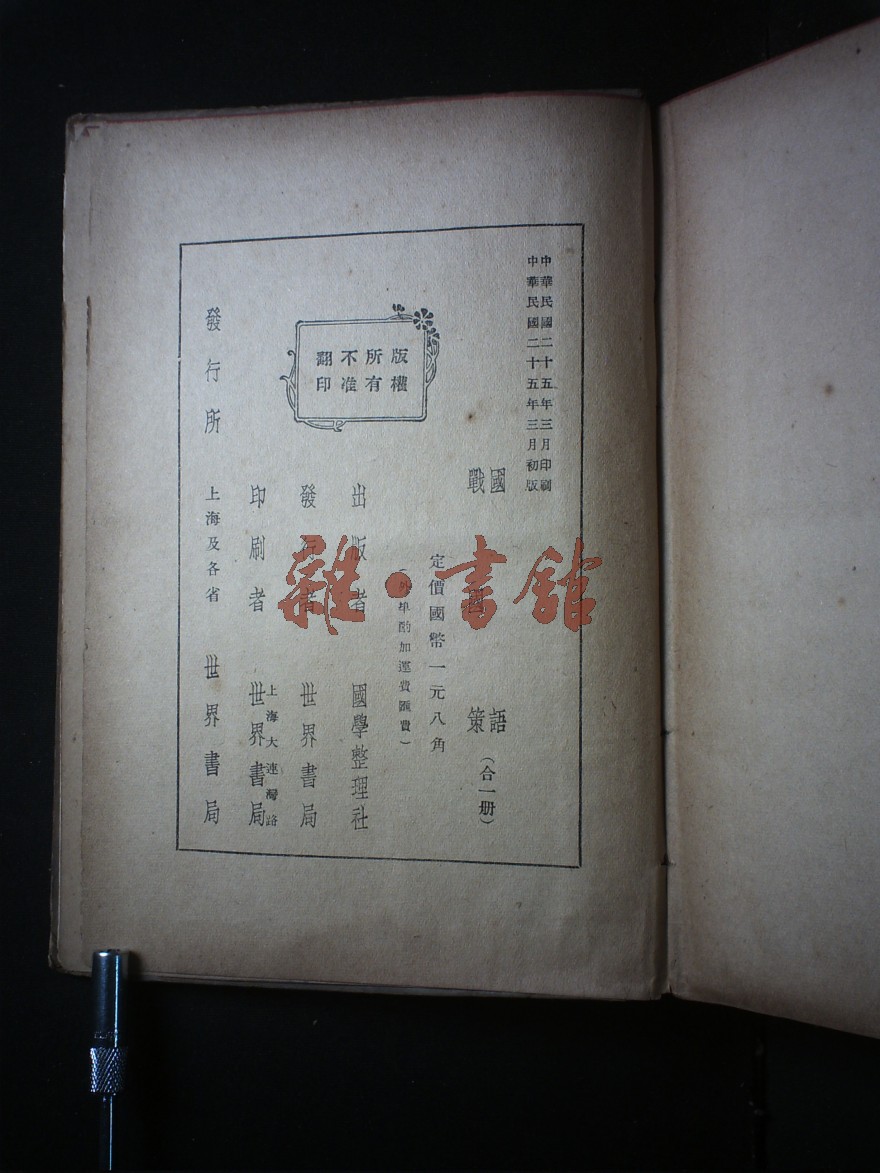 中華民國二十五年三月印刷
中華民國二十五年三月初版
國語
戰國策
(合一册)
定價國幣一元八角
(外埠酌加運費匯費)
版權
所有
不准
翻印
出版者 國學整理社
發行者 世界書局
上海大連灣路
印刷者 世界書局
發行所 上海及各省 世界書局
雜·書館